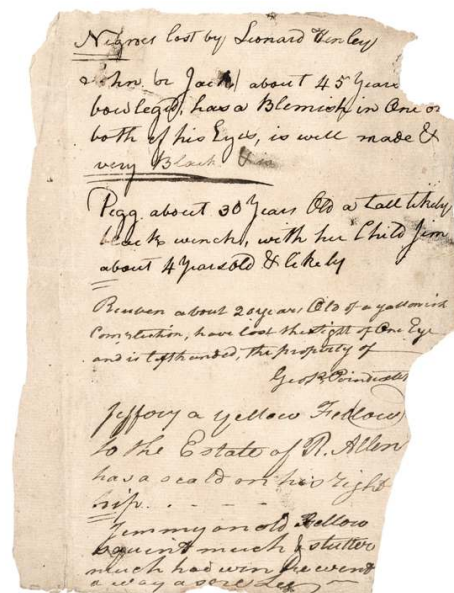 Negroes lost by Leonard Henley
John or Jack about 45 Years
bowleg'd, has a Blemish in One or
both of his Eyes, is well made &
very Black &
Pegg about 30 Years Old a tall likely
black winch, with her Child Jim
about 4 Years old & likely
Reuben about 20 years Old of a yallowish
Complection, have lost the sight of One Eye
and is lefthanded, the property of
Geo R Poindexter
Jeffory a yellow Fellow
to the Estate of R. Allen
has a scald on his right
hip.
Jimmy an old Fellow
squint much & stutter
much had win he went
a way a sore Leg